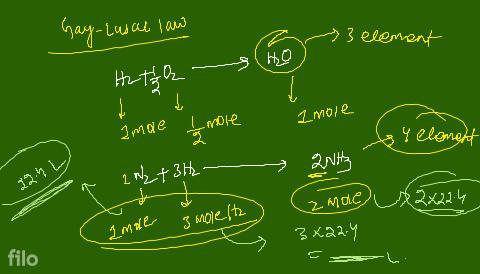 Gay-Lusac law
H2 + 1/2 O2 → H2O → 3 element
1 mole 1/2 mole 1 mole
1 N2 + 3H2 → 2NH3 → 4 element
22.4 L
1 mole 3 mole H2 2 mole 2x22.4
3 x 22.4
= L.
filo